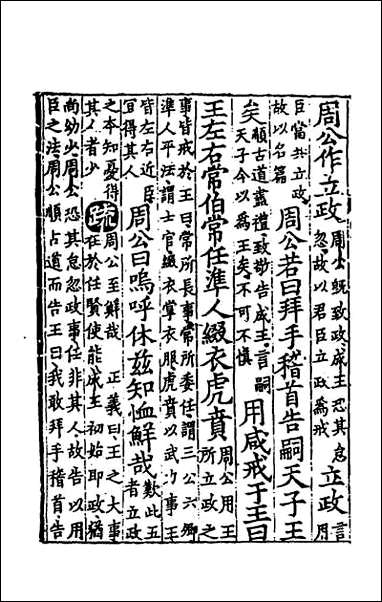 周公作立政
周公既致政成王恐其怠
忽故以君臣立政為戒
立政
言
用
臣當共立政
故以名篇
周公若曰拜手稽首告嗣天子王
矣
順古道盡禮致敬告成王言嗣
天子今以為王矣不可不慎
用咸戒于王曰
王左右常伯常任準人綴衣虎賁
周公用王
所立政之
事皆戒於王曰常所長事常所委任謂三公六卿
準人平法謂士官綴衣掌衣服虎賁以武力事王
皆左右近臣
宜得其人
周公曰嗚呼休茲知恤鮮哉
歎此五
者立政
之本知憂得
其人者少
疏
周公至鮮哉 正義曰王之大事
在於任賢使能成王初始即政猶
尚幼少周公恐其怠忽政事任非其人故告以用
臣之法周公順古道而告王曰我敢拜手稽首告